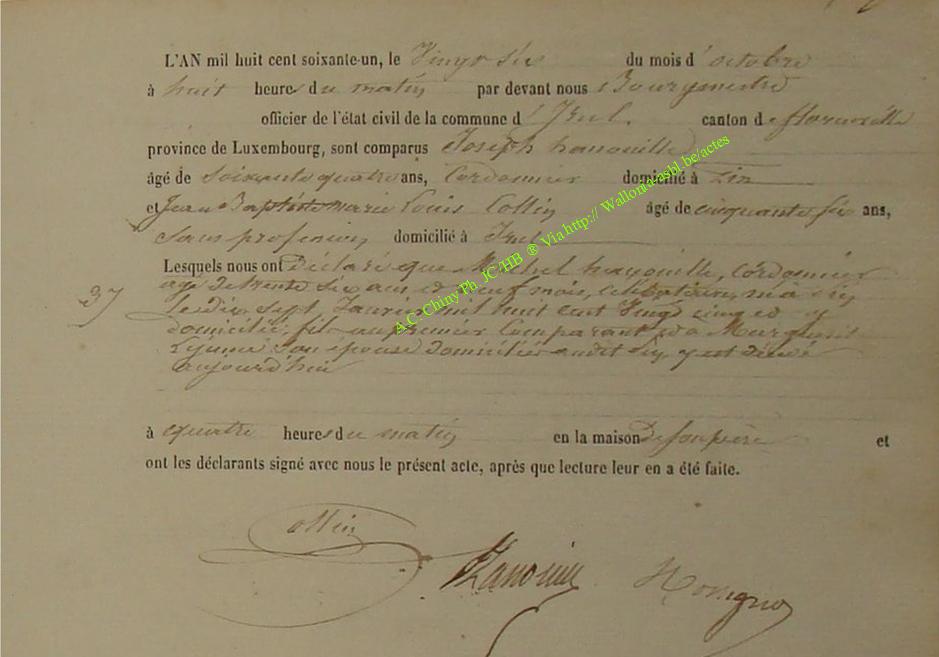 L'AN mil huit cent soixante-un, le Vingt six du mois d'octobre
à huit heures du matin par devant nous Bourgmestre
officier de l'état civil de la commune d'Izel. canton de florenville
province de Luxembourg, sont comparus Joseph hanouille
âgé de soixante quatre ans, Cordonnier domicilié à
et Jean Baptiste marie Louis Collin âgé de cinquante six ans,
Sans profession domicilié à Izel
Lesquels nous ont Déclaré que Michel hanouille, Cordonnier
37
agé de trente six ans et neuf mois, célibataire, né à
le dix sept Janvier mil huit cent Vingt cinq et y
domicilié, fils du premier Comparant et a
Lejeune son épouse domiciliés audit y est décédé
aujourd'hui
à quatre heures du matin en la maison De son père et
ont les déclarants signé avec nous le présent acte, après que lecture leur en a été faite.
Collin
A.C. Chiny Ph. JC-HB ® Via http:// Wallonia-asbl.be/actes